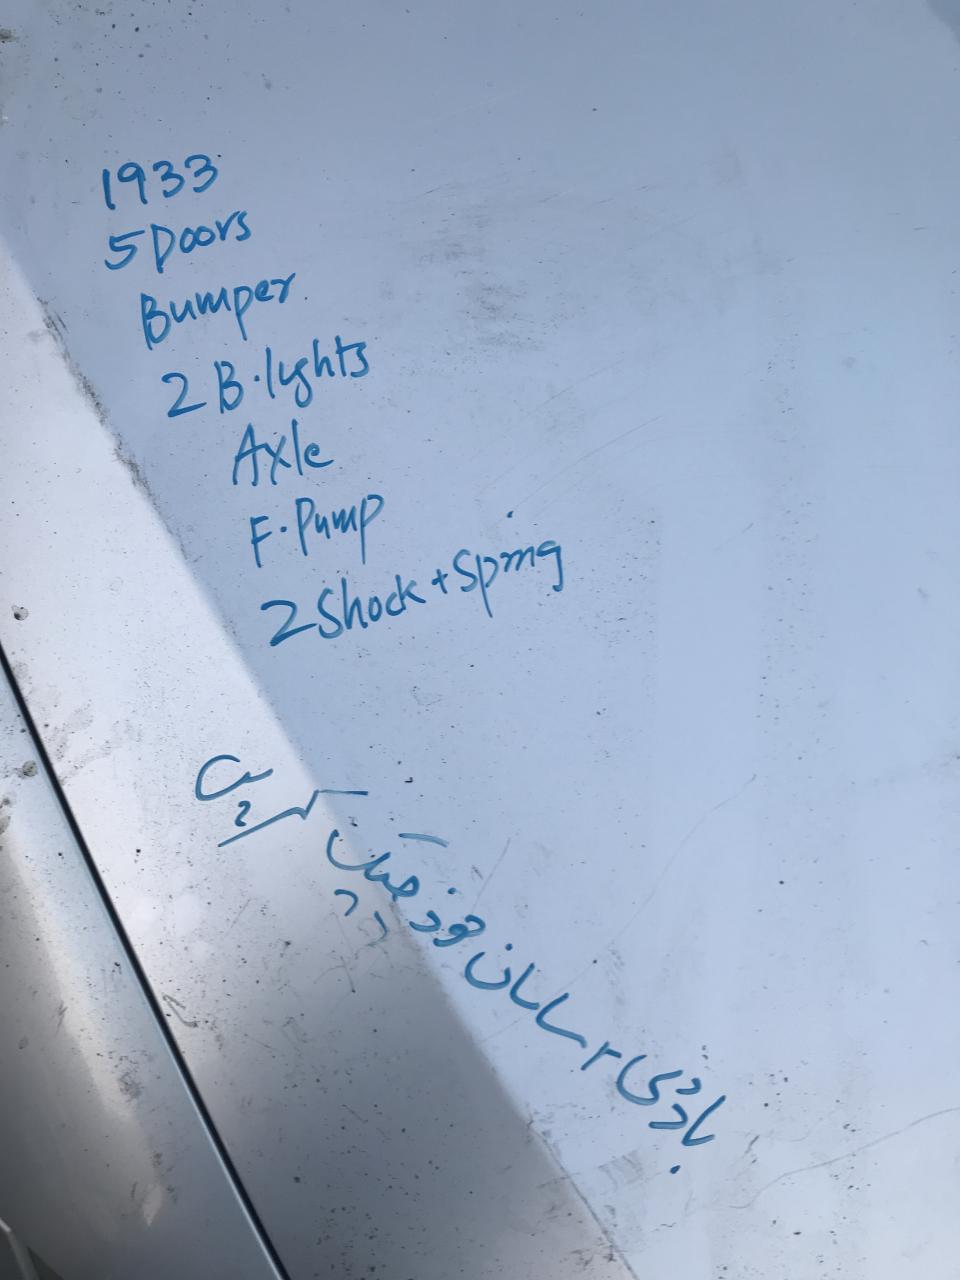 1933
5 Doors
Bumper
2 B.lights
Axle
F.Pump
2 Shock + Spring
باڈی + سامان خود چیک کریں